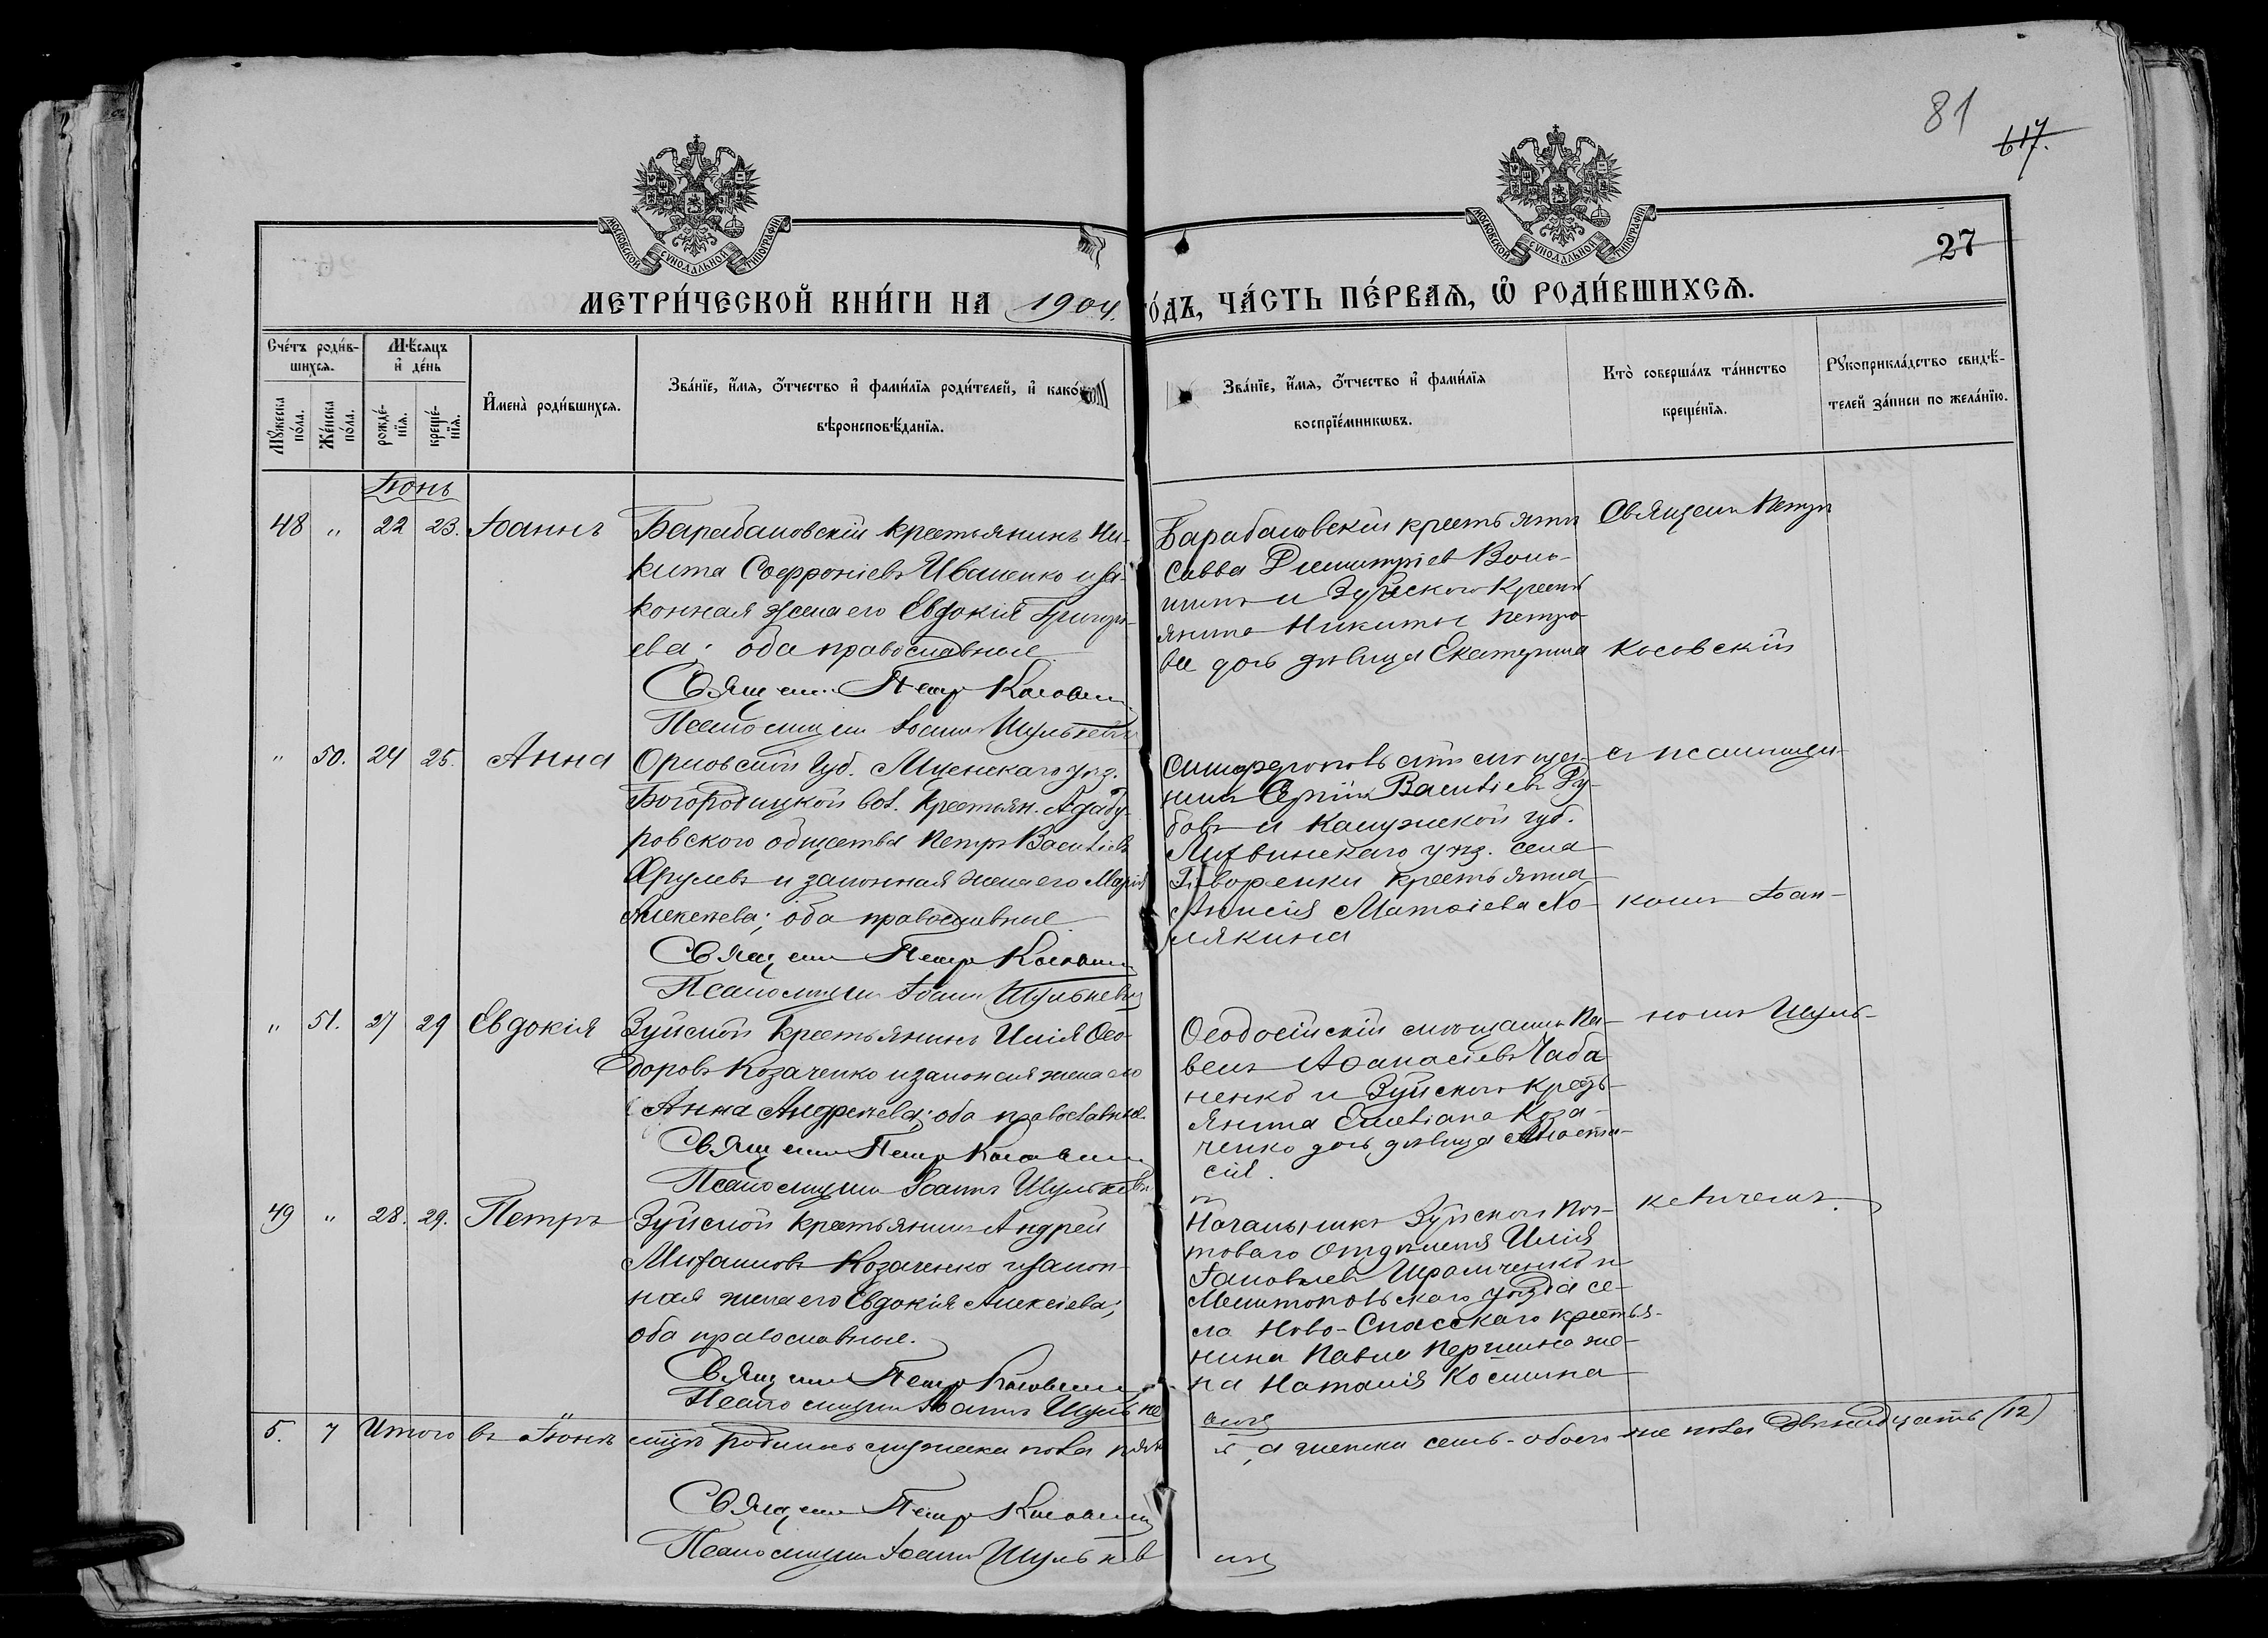 81
617.
МОСКОВСКОЙ СѴНОДАЛЬНОЙ ТИПОГРАФІИ
МОСКОВСКОЙ СѴНОДАЛЬНОЙ ТИПОГРАФІИ
27
МЕТРИ́ЧЕСКОЙ КНИ́ГИ НА 1904. ГО́ДЪ, ЧА́СТЬ ПЕ́РВАѦ, Ѡ҆ РОДИ́ВШИХСѦ.
Сче́тъ роди́в-
шихся.
Мꙋ́жеска по́ла.
Же́нска по́ла.
Мѣ́сяцъ и҆ де́нь
рожде́-нїя.
креще́-нїя.
И҆мена̀ роди́вшихся.
Зва́нїе, и҆́мя, ѻ҆́тчество и҆ фами́лїя роди́телей, и҆ како́
вѣроисповѣ́данїя.
Зва́нїе, и҆́мя, ѻ҆́тчество и҆ фами́лїя
воспрїе́мникѡвъ.
Кто̀ соверша́лъ та́инство
креще́нїя.
Рꙋкоприкла́дство свидѣ́-
телей за́писи по жела́нїю.
Іюнь
48 " 22 23. Іоаннъ
Барабановскій крестьянинъ Ни-
кита Софроніевъ Иваненко и за-
конная жена его Евдокія Григорь-
ева; оба православные
Священ. Петръ Косовскій
Псаломщикъ Іоаннъ Шулькевичъ
Барабановскій крестьянинъ
Савва Димитріевъ Воло-
шинъ и Зуйского крест-
янина Никиты Петро-
ва дочь дѣвица Екатерина
Священ. Петръ
Косовскій
" 50. 24 25. Анна
Орловской губ. Мценскаго уѣз.
Богородицкой вол. крестьян. Адабу-
ровского общества Петръ Васильевъ
Хрулевъ и законная жена его Марія
Алексѣева; оба православные
Священ. Петръ Косовскій
Псаломщикъ Іоаннъ Шулькевичъ
Симферопольскій мѣща-
нинъ Сергій Васильевъ Ру-
бовъ и Калужской губ.
Лихвинскаго уѣз. села
крестьянка
Анисія Матѳіева Хо-
мякина
съ псаломщи-
комъ Іоан-
" 51. 27 29 Евдокія
Зуйской крестьянинъ Илія Ѳео-
доровъ Козаченко и законная жена его
Анна Андреева; оба православные.
Священ. Петръ Косовскій
Псаломщикъ Іоаннъ Шулькевич
Ѳеодосійскій мѣщанинъ Па-
велъ Аѳанасіевъ Чаба-
ненко и Зуйского кресть-
янина Емеліана Коза-
ченко дочь дѣвица Анаста-
сія.
номъ Шуль-
49 " 28. 29. Петръ
Зуйской крестьянинъ Андрей
Михаиловъ Козаченко и закон-
ная жена его Евдокія Алексіева;
оба православные.
Священ. Петръ Косовскій
Псаломщикъ Іоаннъ Шульке
вичъ
Начальникъ Зуйского Поч-
товаго Отдѣленія Илія
Іаковлевъ и
Мелитопольскаго уѣзда се-
ла Ново-Спасскаго крестья-
нина Павла Першина же-
на Наталія Космина
кевичемъ.
5. 7 Итого въ Іюнѣ мѣсяцѣ родилось мужеска пола пять
, а женска семь - обоего же пола двѣнадцать (12)
Священ. Петръ Косовскій
Псаломщикъ Іоаннъ Шулькев
ичъ